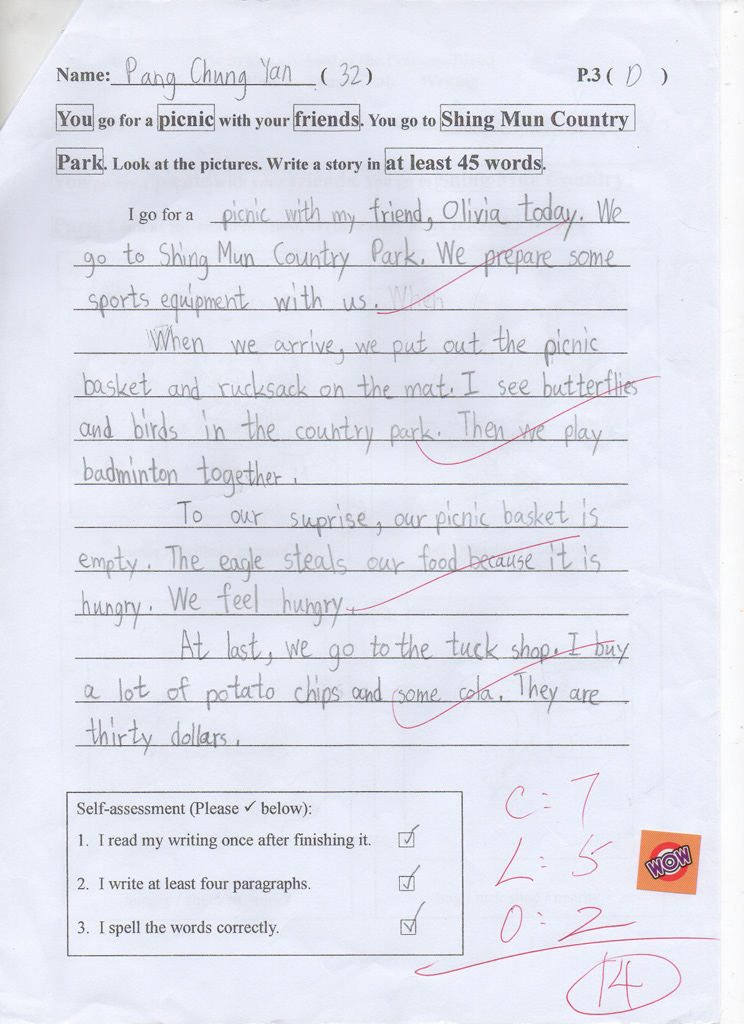 Name: Pang Chung Yan ( 32 ) P.3 ( D )
You go for a picnic with your friends. You go to Shing Mun Country
Park. Look at the pictures. Write a story in at least 45 words.
I go for a picnic with my friend, Olivia today. We
go to Shing Mun Country Park. We prepare some
sports equipment with us. When
When we arrive, we put out the picnic
basket and rucksack on the mat. I see butterflies
and birds in the country park. Then we play
badminton together.
To our suprise, our picnic basket is
empty. The eagle steals our food because it is
hungry. We feel hungry.
At last, we go to the tuck shop. I buy
a lot of potato chips and some cola. They are
thirty dollars.
Self-assessment (Please ✓ below):
1. I read my writing once after finishing it. ✓
2. I write at least four paragraphs. ✓
3. I spell the words correctly. ✓
C: 7
L: 5
O: 2
14
WOW